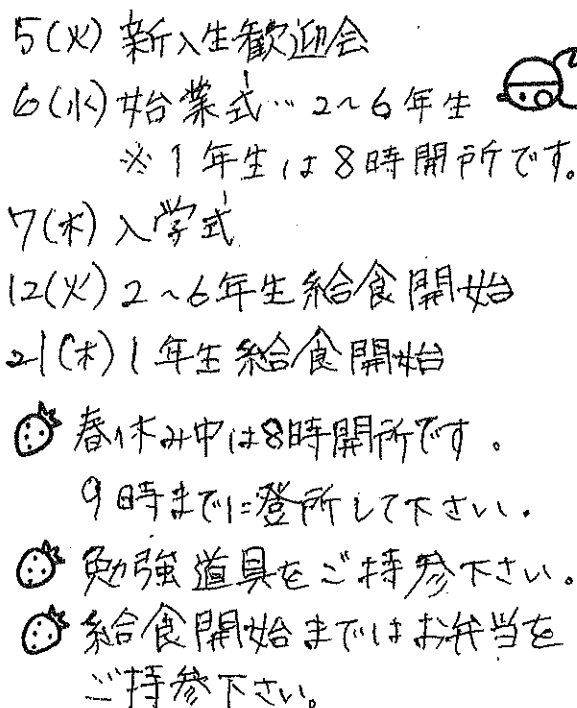 5(火) 新入生歓迎会
6(水) 始業式… 2～6年生
※1年生は8時開所です。
7(木) 入学式
12(火) 2～6年生給食開始
21(木) 1年生給食開始
春休み中は8時開所です。
9時までに登所して下さい。
勉強道具をご持参下さい。
給食開始まではお弁当を
ご持参下さい。